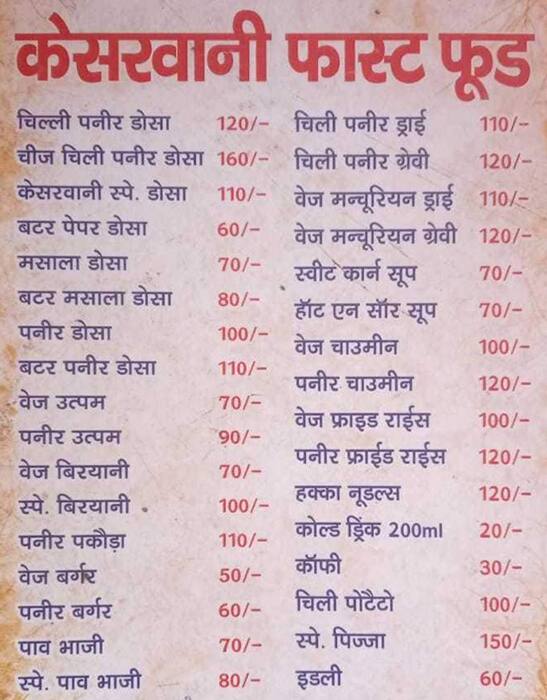 केसरवानी फास्ट फूड
चिल्ली पनीर डोसा 120/-
चीज चिली पनीर डोसा 160/-
केसरवानी स्पे. डोसा 110/-
बटर पेपर डोसा 60/-
मसाला डोसा 70/-
बटर मसाला डोसा 80/-
पनीर डोसा 100/-
बटर पनीर डोसा 110/-
वेज उत्पम 70/-
पनीर उत्पम 90/-
वेज बिरयानी 70/-
स्पे. बिरयानी 100/-
पनीर पकौड़ा 110/-
वेज बर्गर 50/-
पनीर बर्गर 60/-
पाव भाजी 70/-
स्पे. पाव भाजी 80/-
चिली पनीर ड्राई 110/-
चिली पनीर ग्रेवी 120/-
वेज मन्चूरियन ड्राई 110/-
वेज मन्चूरियन ग्रेवी 120/-
स्वीट कार्न सूप 70/-
हॅाट एन सॅार सूप 70/-
वेज चाउमीन 100/-
पनीर चाउमीन 120/-
वेज फ्राइड राईस 100/-
पनीर फ्राईड राईस 120/-
हक्का नूडल्स 120/-
कोल्ड ड्रिंक 200ml 20/-
कॉफी 30/-
चिली पोटैटो 100/-
स्पे. पिज्जा 150/-
इडली 60/-